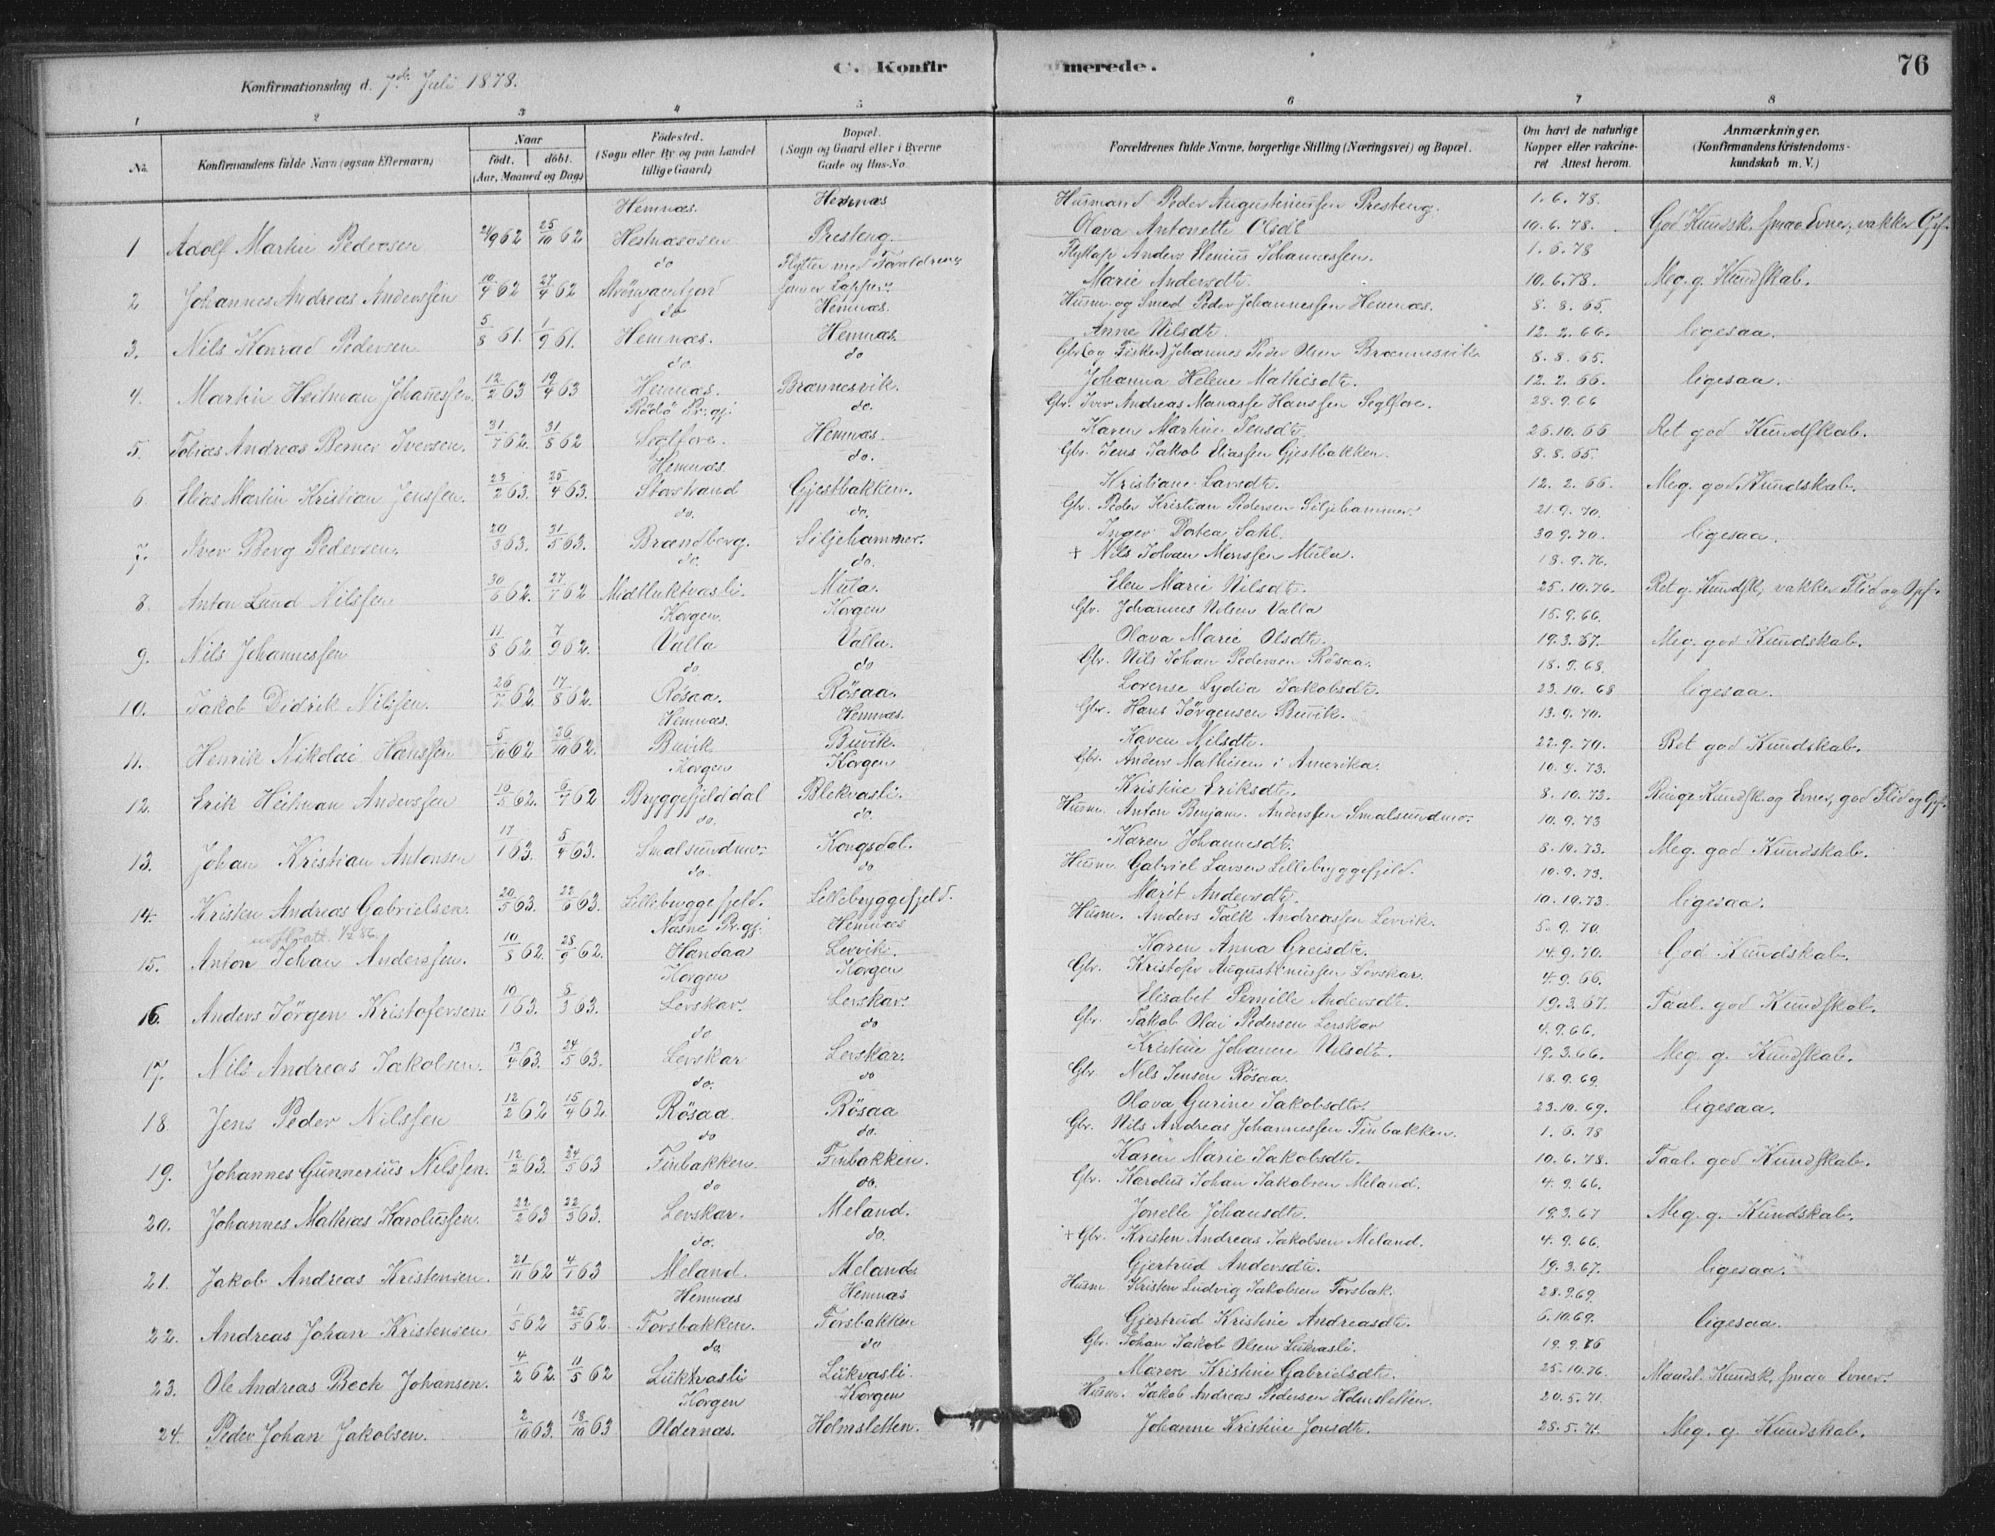 C. Konfirmerede.
76
Konfirmationsdag d. 7de Juli 1878.
1 2 3 4 5 6 7 8
No. | Konfirmandens fulde Navn (ogsaa Efternavn) | Naar födt. döbt. (Aar, Maaned og Dag) | Födested. (Sogn eller By og paa Landet tillige Gaard) | Bopæl. (Sogn og Gaard eller i Byerne Gade og Hus-No. | Forældrenes fulde Navne, borgerlige Stilling (Næringsvei) og Bopæl. | Om havt de naturlige Kopper eller vakcineret Attest herom. | Anmærkninger. (Konfirmandens Kristendomskundskab m. V.)
Hemnæs. Hemnæs Husmand Peder Augustinussen Presteng. 1. 6. 78.
1 Adolf Martin Pedersen 21/9 62 25/10 62 Hestnæsosen Presteng. Olava Antonette Olsdt. 10. 6. 78. God Kundsk. smaa Evner, vakker Opf.
do Flytter med Forældrene Flytlap Anders Elenius Johannessen. 1. 6. 78
2 Johannes Andreas Anderssen 10/4 62 27/4 62 Lapper. Marie Andersdt. 10. 6. 78. Meg. g. Kundskab.
do Hemnæs. Husm. og Smed Peder Johannessen Hemnæs. 8. 8. 65.
3. Nils Konrad Pedersen 5/8 61. 1/9 61. Hemnæs. Hemnæs. Anne Nilsdt. 12. 2. 66. ligesaa.
do do Gbr. (og Fisker) Johannes Peder Olsen Brænnesvik. 8. 8. 65.
4. Martin Heitman Johanssen. 12/2 63 19/4 63 Hemnæs. Brænnesvik. Johanna Helene Mathisdt. 12. 2. 66. ligesaa.
Rödö Pr.gj. do. Gbr. Iver Andreas Manasse Hanssen Seglfore. 28. 9. 66
5. Tobias Andreas Berner Iversen. 31/7 62. 31/8 62 Seglfore. Hemnæs. Karen Martine Jensdt. 26. 10. 66 Ret god Kundskab.
Hemnæs. do. Gbr. Jens Jakob Eliassen Gjestbakken. 8. 8. 65.
6. Elias Martin Kristian Jenssen. 23/2 63. 25/4 63. Storstrand Gjestbakken. Kristiane Larsdt. 12. 2. 66. Meg. god Kundskab.
do. do. Gbr. Peder Kristian Pedersen Siljehammer. 21. 9. 70.
7. Iver Berg Pedersen. 20/3 63. 31/5 63. Brændberg. Siljehammer. Inger Dortea Dahl. 30. 9. 70. ligesaa.
do. do. + Nils Johan Monssen Mula. 18. 9. 76.
8. Anton Lund Nilssen 30/6 62. 27/7 62 Midtluktvasli. Mula. Elen Marie Nilsdt. 25. 10. 76. Ret g. Kundsk., vakker Flid og Opf.
Korgen Korgen Gbr. Johannes Nilsen Valla 15. 9. 66.
9. Nils Johannessen 11/8 62. 7/9 62. Valla Valla. Olava Marie Olsdt. 19. 3. 67. Meg. god Kundskab.
do do Gbr. Nils Johan Pedersen Rösaa. 18. 9. 68.
10. Jakob Didrik Nilssen. 26/7 62. 17/8 62. Rösaa. Rösaa. Lorense Lydia Jakobsdt. 23. 10. 68 ligesaa.
Hemnæs. Hemnæs. Gbr. Hans Jörgensen Buvik. 13. 9. 70.
11. Henrik Nikolai Hanssen 5/10 62. 26/10 62. Buvik Buvik. Karen Nilsdt. 22. 9. 70. Ret god Kundskab.
Korgen Korgen Gbr. Anders Mathisen i Amerika. 10. 9. 73.
12. Erik Heitman Anderssen 10/5 62. 6/7 62 Bryggefjelddal Blekvasli. Kristine Eriksdt. 8. 10. 73. Ringe Kundsk. og Evner, god Flid og Opf.
do. do. Husm. Anton Benjam. Anderssen Smalsundmo. 10. 9. 73
13. Johan Kristian Antonsen 17/1 63. 5/4 63. Smalsundmo. Kongsdal. Karen Johannesdt. 8. 10. 73. Meg. god Kundskab.
do. do Husm. Gabriel Larsen Lillebryggefjeld. 10. 9. 73.
14. Kristen Andreas Gabrielsen. 20/5 63. 22/6 63. Lillebryggefjeld. Lillebryggefjeld. Marit Andersdt. 10. 10. 73. ligesaa.
Næsne Pr.gj. Hemnæs Husm. Anders Falk Andreassen Levvik. 5. 9. 70
15. Anton Johan Anderssen. 10/8 62. 28/9 62. Handaa Levvik. Karen Anna Greisdt. 14. 9. 70. God Kundskab.
Korgen Korgen Gbr. Kristofer Augustinussen Levskar. 4. 9. 66.
16. Anders Jörgen Kristofersen. 10/1 63. 8/3 63. Levskar. Levskar. Elisabet Pernille Andersdt. 19. 3. 67. Taal. god Kundskab.
do do Gbr. Jakob Olai Pedersen Levskar 4. 9. 66.
17. Nils Andreas Jakobsen. 13/4 63. 24/5 63. Levskar Levskar. Kristine Johanne Nilsdt. 19. 3. 66. Meg. g. Kundskab.
do. do Gbr. Nils Jensen Rösaa. 18. 9. 69.
18. Jens Peder Nilssen 12/2 62 15/4 62. Rösaa Rösaa Olava Gurine Jakobsdt. 23. 10. 69. ligesaa.
do do. Gbr. Nils Andreas Johannessen Finbakken. 1. 6. 78
19. Johannes Gunnerius Nilssen. 12/2 63. 24/5 63 Finbakken. Finbakken. Karen Marie Jakobsdt. 10. 6. 78. Taal. god Kundskab.
do do. Gbr. Karolus Johan Jakobsen Meland. 4. 9. 66.
20. Johannes Mathias Karolussen. 22/2 63 22/3 63. Levskar. Meland. Jonelle Johansdt. 19. 3. 67 Meg. g. Kundskab.
do. do. + Gbr. Kristen Andreas Jakobsen Meland. 4. 9. 66.
21. Jakob Andreas Kristensen. 21/11 62 4/1 63 Meland. Meland. Gjertrud Andersdt. 19. 3. 67. ligesaa.
Hemnæs Hemnæs Husm Kristen Ludvig Jakobsen Forsbak. 28. 9. 69.
22. Andreas Johan Kristensen 1/5 62 25/5 62. Forsbakken. Forsbakken Gjertrud Kristine Andreasdt. 6. 10. 69. ligesaa.
do. do Gbr. Johan Jakob Olsen Lukvasli. 19. 9. 76
23. Ole Andreas Bech Johansen. 4/2 62. 11/5 62 Lukvasli Lukvasli. Maren Kristine Gabrielsdt. 25. 10. 76. Maadel. Kundsk., smaa Evner.
Korgen Korgen Husm. Jakob Andreas Pedersen Holmsletten. 20. 5. 71.
24. Peder Johan Jakobsen. 2/10 63. 18/10 63 Oldernæs. Holmsletten. Johanne Kristine Jonsdt. 28. 5. 71. Meg. g. Kundskab.